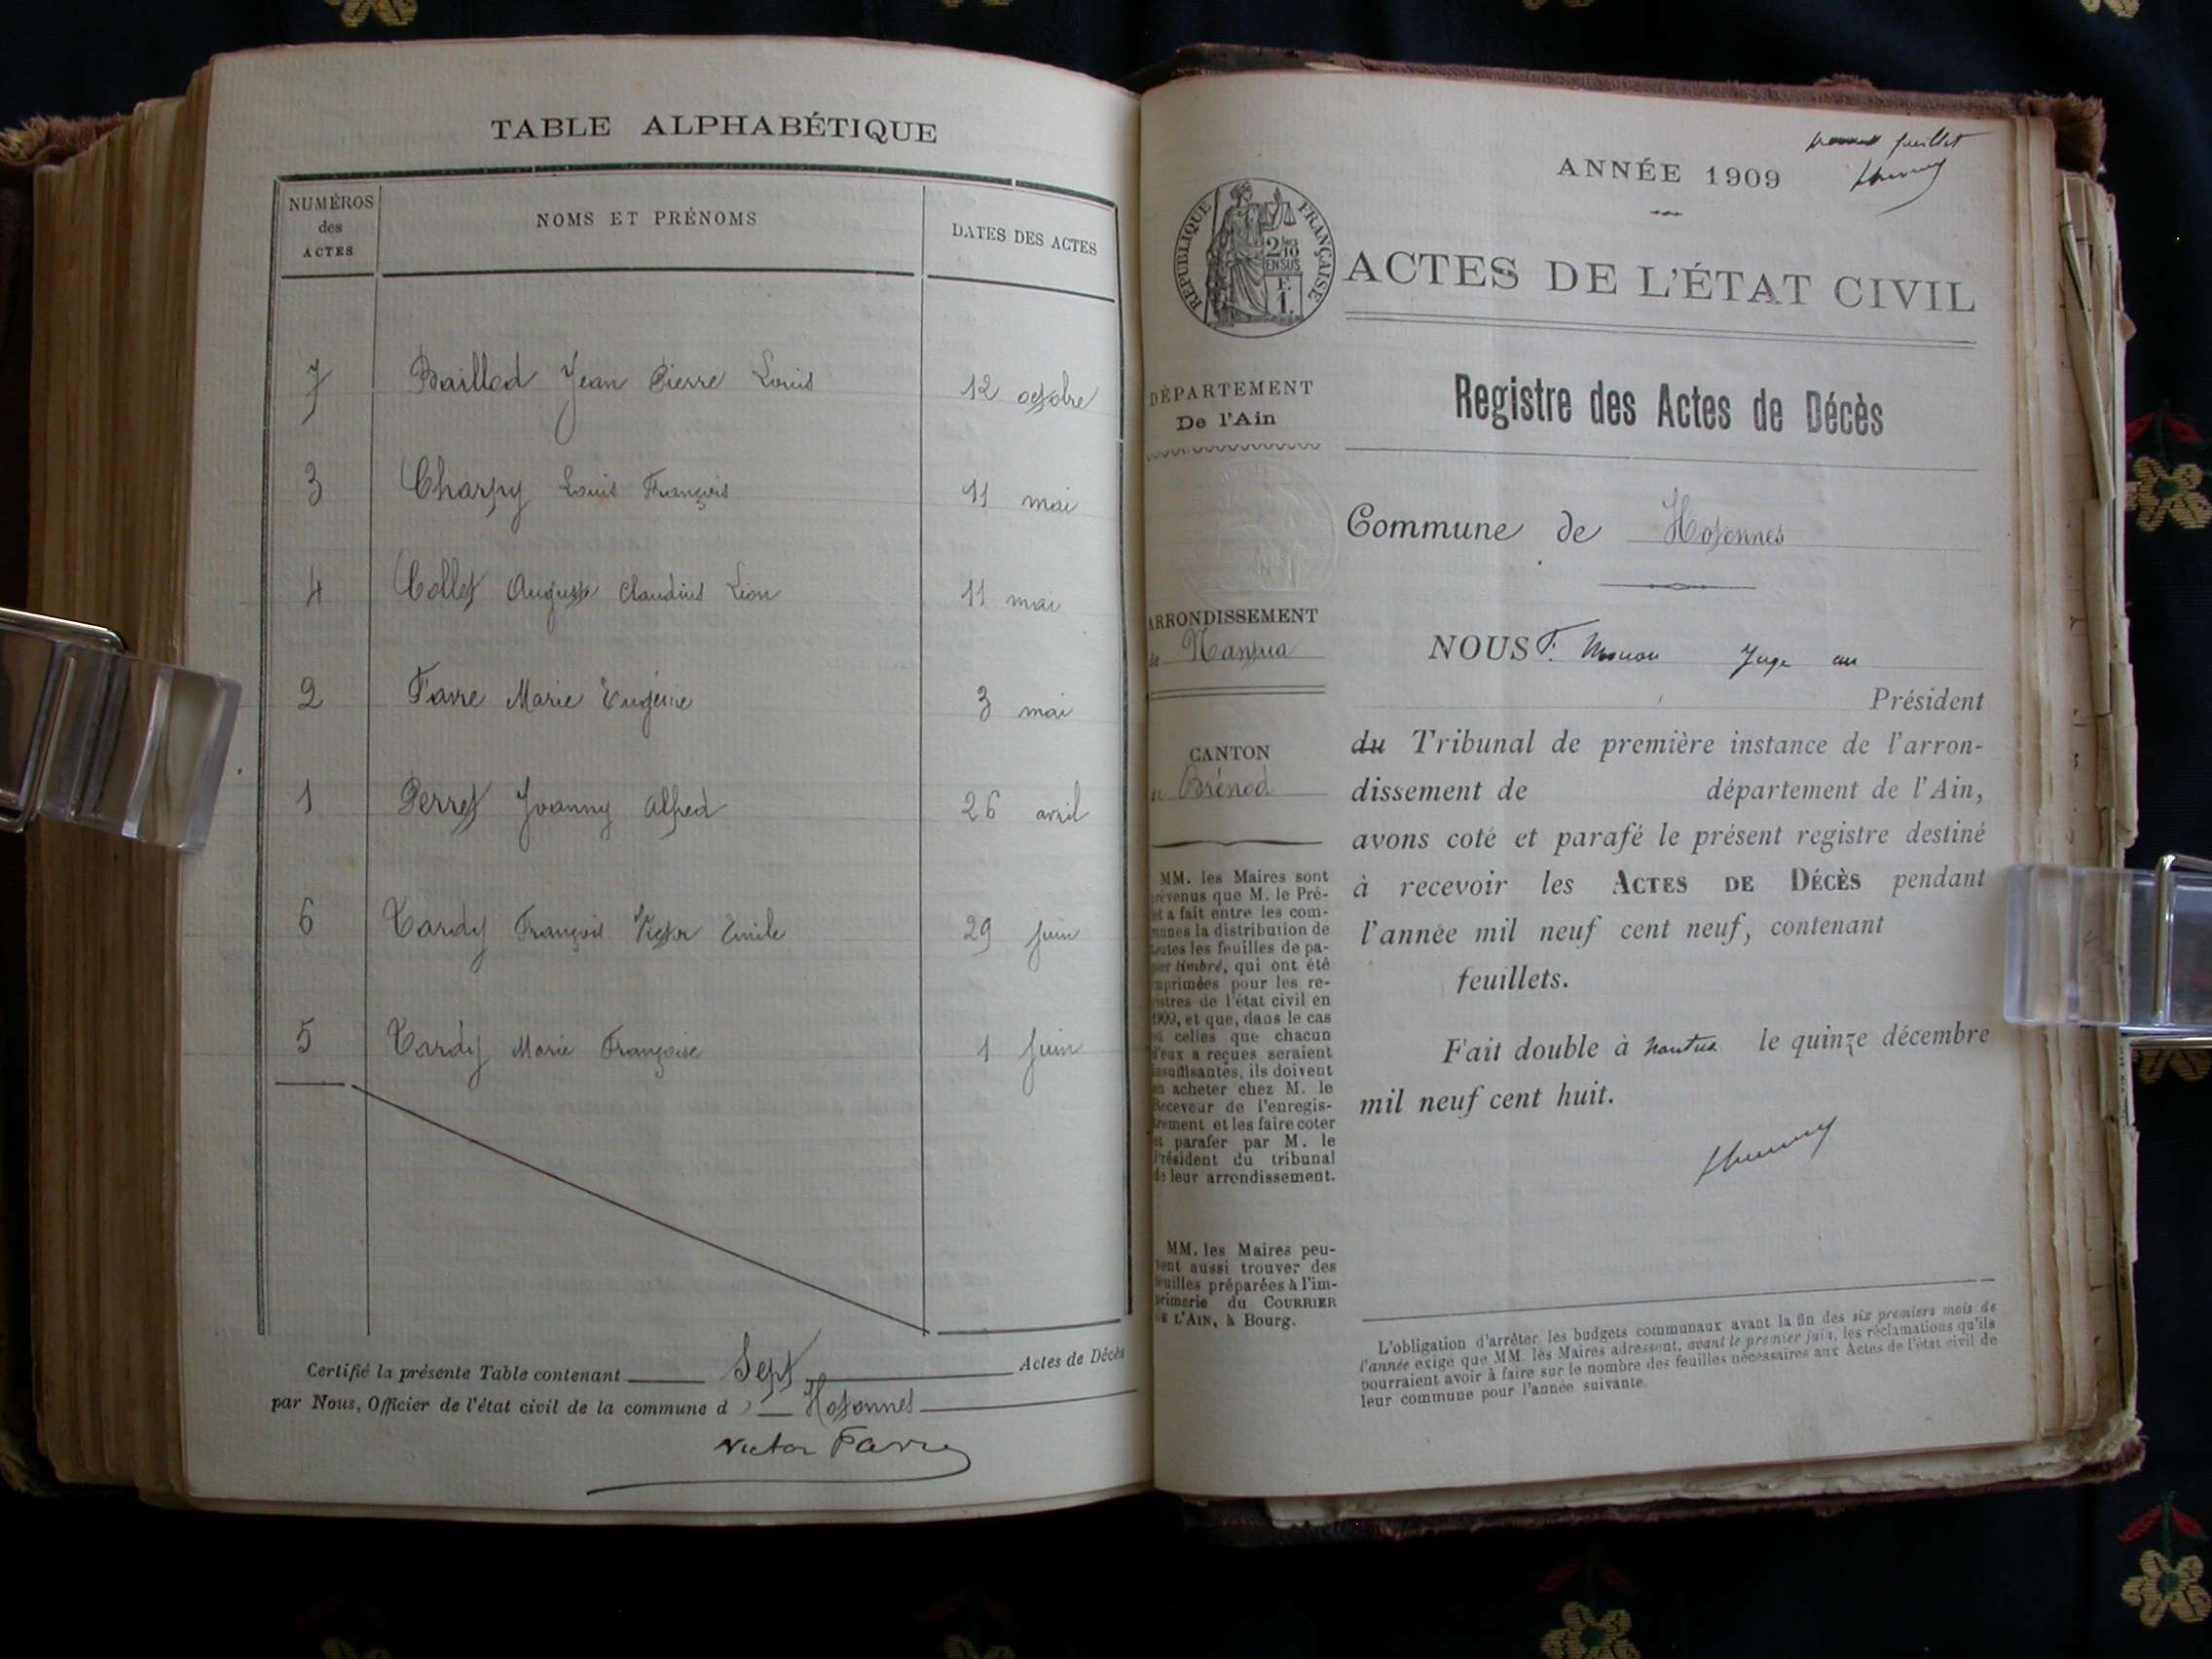 TABLE ALPHABÉTIQUE
NUMÉROS des ACTES
NOMS ET PRÉNOMS
DATES DES ACTES
7 Baillod Jean Pierre Louis 12 octobre
3 Charpy Louis François 11 mai
4 Collet Auguste Claudius Léon 11 mai
2 Favre Marie Eugénie 3 mai
1 Perret Joanny Alfred 26 avril
6 Tardy François Victor Emile 29 juin
5 Tardy Marie Françoise 1 juin
Certifié la présente Table contenant Sept Actes de Décès
par Nous, Officier de l'état civil de la commune d Hotonnes
Victor Favre
feuillet
ANNÉE 1909
RÉPUBLIQUE FRANÇAISE
2/10 EN SUS
E.
1.
ACTES DE L'ÉTAT CIVIL
DÉPARTEMENT
De l'Ain
Registre des Actes de Décès
Commune de Hotonnes
ARRONDISSEMENT
de Nantua
CANTON
de Brénod
MM. les Maires sont
prévenus que M. le Pré-
fet a fait entre les com-
munes la distribution de
toutes les feuilles de pa-
pier timbré, qui ont été
imprimées pour les re-
gistres de l'état civil en
1909, et que, dans le cas
où celles que chacun
d'eux a reçues seraient
insuffisantes, ils doivent
en acheter chez M. le
Receveur de l'enregis-
trement et les faire coter
et parafer par M. le
Président du tribunal
de leur arrondissement.
MM. les Maires peu-
vent aussi trouver des
feuilles préparées à l'im-
primerie du COURRIER
DE L'AIN, à Bourg.
NOUS F. Juge au
Président
du Tribunal de première instance de l'arron-
dissement de département de l'Ain,
avons coté et parafé le présent registre destiné
à recevoir les ACTES DE DÉCÈS pendant
l'année mil neuf cent neuf, contenant
feuillets.
Fait double à Nantua le quinze décembre
mil neuf cent huit.
L'obligation d'arrêter les budgets communaux avant la fin des six premiers mois de
l'année exige que MM. les Maires adressent, avant le premier juin, les réclamations qu'ils
pourraient avoir à faire sur le nombre des feuilles nécessaires aux Actes de l'état civil de
leur commune pour l'année suivante.